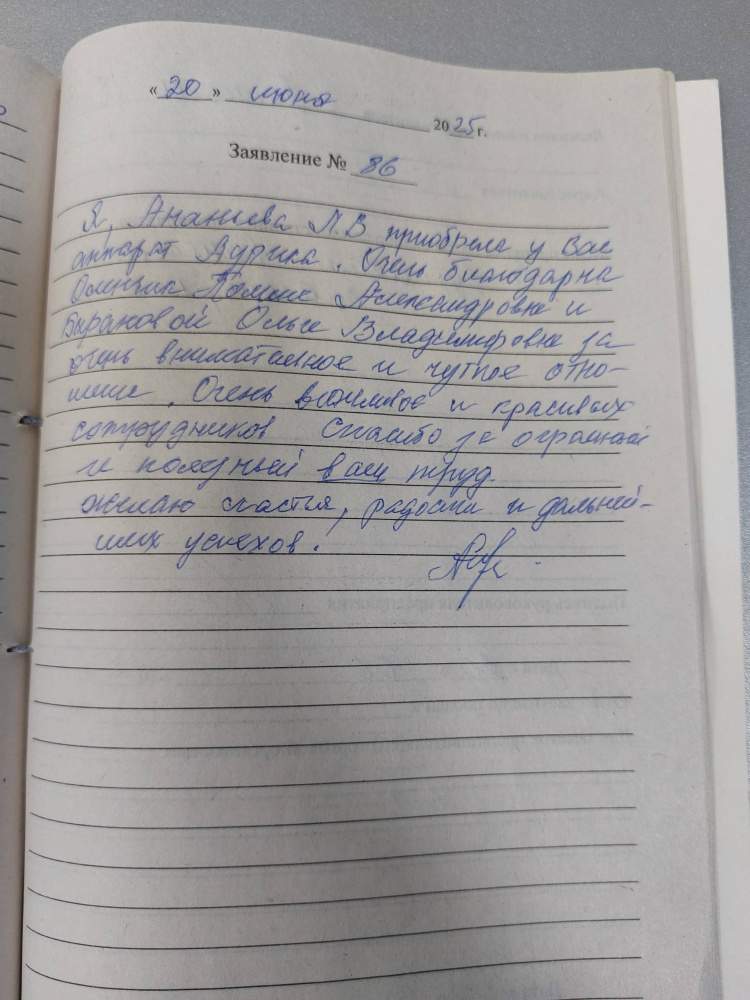 « 20 » июня 2025 г.
Заявление № 86
Я, Ананьева Л.В приобрела у Вас
аппарат Аудика. Очень благодарна
Александровне и
Ольге Владимировне за
очень внимательное и чуткое отно-
шение. Очень вежливое и красивых
сотрудников Спасибо за огромный
и полезный ваш труд.
желаю счастья, радости и дальней-
ших успехов.